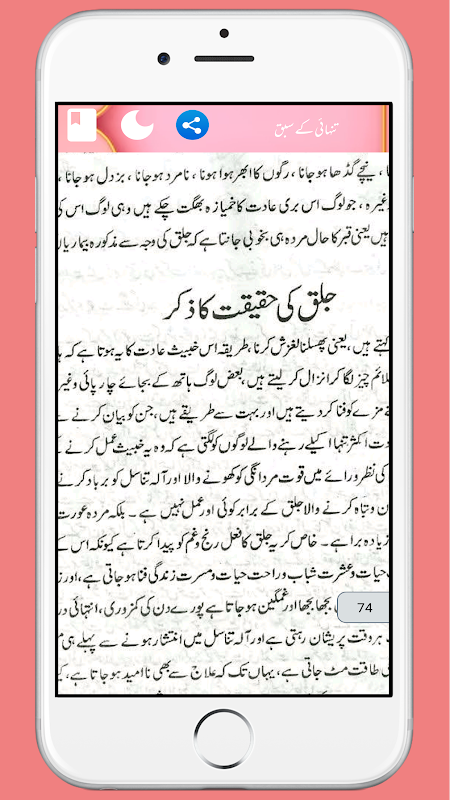 تنہائی کے سبق
، نیچے گڈھا ہو جانا ، رگوں کا ابھرا ہوا ہونا ، نامرد ہو جانا ، بزدل ہو جانا ،
غیرہ ، جو لوگ اس بری عادت کا خمیازہ بھگت چکے ہیں وہی لوگ اس کی
ہیں یعنی قبر کا حال مردہ ہی بخوبی جانتا ہے کہ جلق کی وجہ سے مذکورہ بیماریاں
جلق کی حقیقت کا ذکر
کہتے ہیں، یعنی پھسلنا لغزش کرنا، طریقہ اس خبیث عادت کا یہ ہوتا ہے کہ
ملائم چیز لگا کر انزال کر لیتے ہیں، بعض لوگ ہاتھ کے بجائے چارپائی وغیر
مزے کو فنا کر دیتے ہیں اور بہت سے طریقے ہیں، جن کو بیان کرنے
دت اکثر تنہا اکیلے رہنے والے لوگوں کو لگتی ہے کہ وہ یہ خبیث عمل کرنے
کی نظر و رائے میں قوت مردانگی کو کھونے والا اور آلہ تناسل کو برباد کرنے
ن و تباہ کرنے والا جلق کے برابر کوئی اور عمل نہیں ہے ۔ بلکہ مردہ عورت
زیادہ برا ہے ۔ خاص کر یہ جلق کا فعل رنج و غم کو پیدا کرتا ہے کیونکہ اس کے
حیات و عشرت شباب و راحت حیات و مسرت زندگی فنا ہو جاتی ہے، اور
بجھا بجھا اور غمگین ہو جاتا ہے پورے دن کی کمزوری، انتہائی در
74
ہر وقت پریشان رہتی ہے اور آلہ تناسل میں انتشار ہونے سے پہلے ہی
طاقت مٹ جاتی ہے، یہاں تک کہ علاج سے بھی نا امید ہو جاتا ہے،